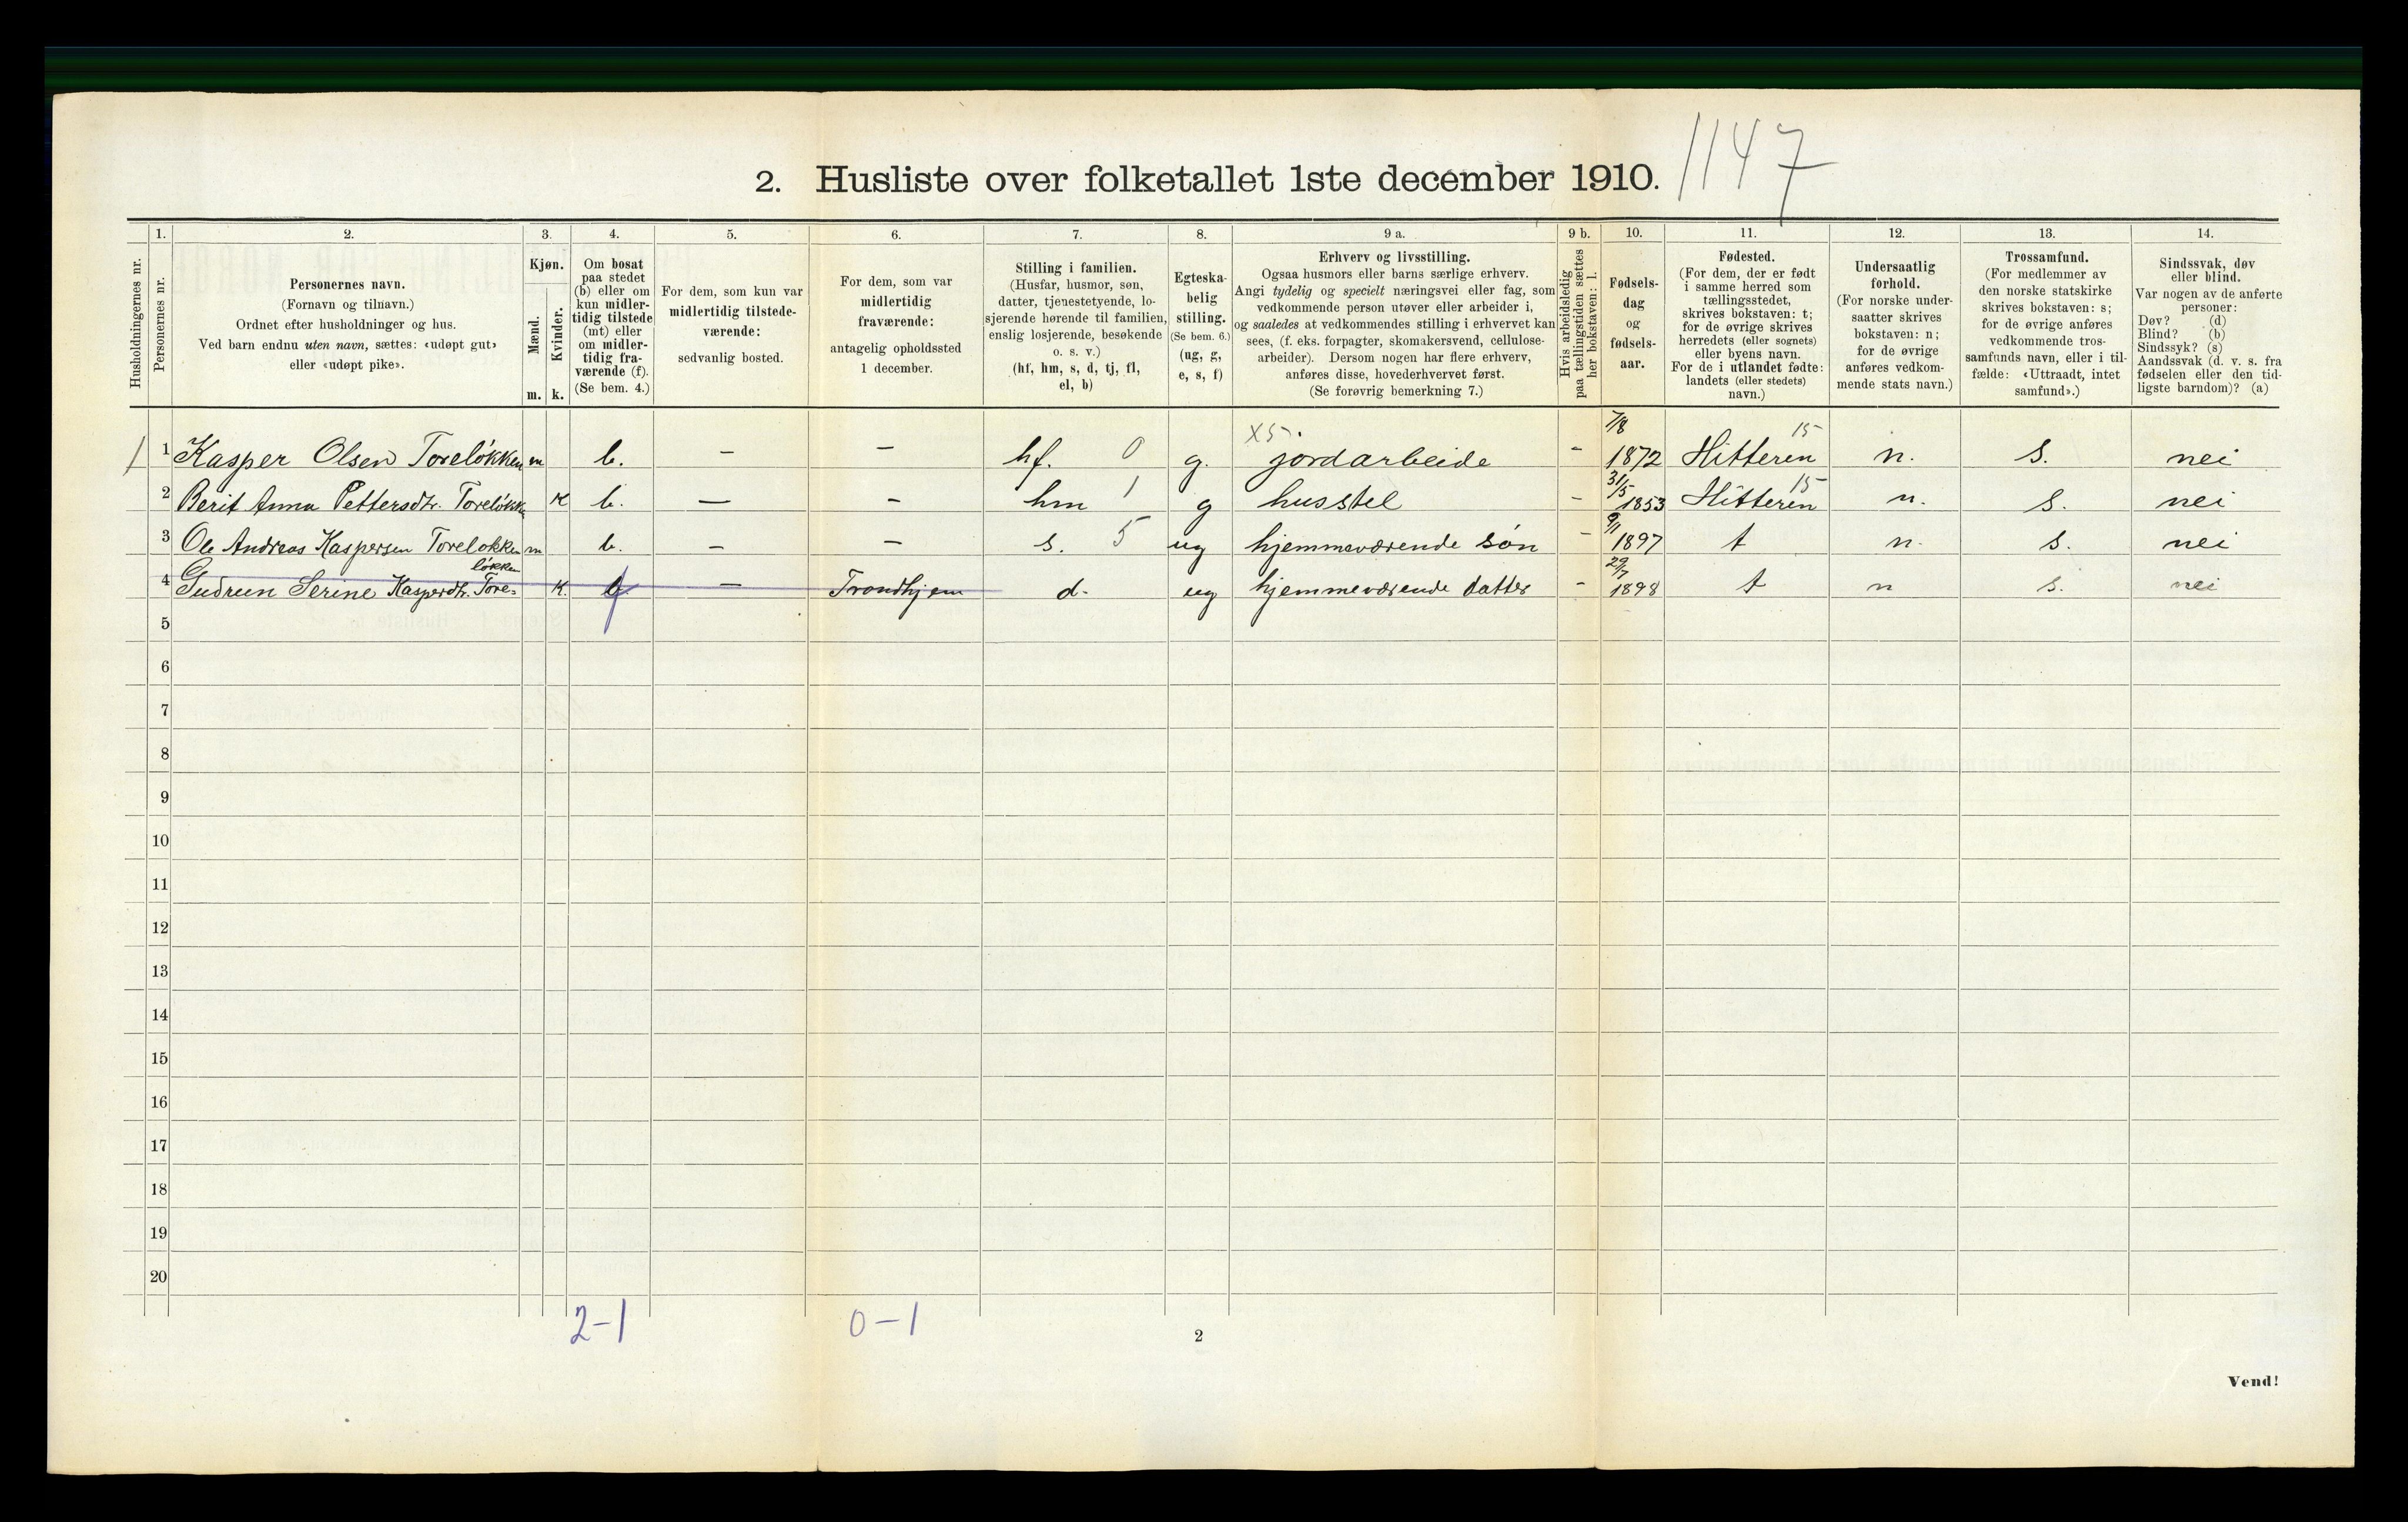 2. Husliste over folketallet 1ste december 1910. 1147
1. 2. 3. 4. 5. 6. 7. 8. 9 a. 9 b. 10. 11. 12. 13. 14.
Husholdningernes nr.
Personernes nr.
Personernes navn.
(Fornavn og tilnavn.)
Ordnet efter husholdninger og hus.
Ved barn endnu uten navn, sættes: «udøpt gut»
eller «udøpt pike».
Kjøn.
Mænd.
Kvinder.
m. k.
Om bosat
paa stedet
(b) eller om
kun midler-
tidig tilstede
(mt) eller
om midler-
tidig fra-
værende (f).
(Se bem. 4.)
For dem, som kun var
midlertidig tilstede-
værende:
sedvanlig bosted.
For dem, som var
midlertidig
fraværende:
antagelig opholdssted
1 december.
Stilling i familien.
(Husfar, husmor, søn,
datter, tjenestetyende, lo-
sjerende hørende til familien,
enslig losjerende, besøkende
o. s. v.)
(hf, hm, s, d, tj, fl,
el, b)
Egteska-
belig
stilling.
(Se bem. 6.)
(ug, g,
e, s, f)
Erhverv og livsstilling.
Ogsaa husmors eller barns særlige erhverv.
Angi tydelig og specielt næringsvei eller fag, som
vedkommende person utøver eller arbeider i,
og saaledes at vedkommendes stilling i erhvervet kan
sees, (f. eks. forpagter, skomakersvend, cellulose-
arbeider). Dersom nogen har flere erhverv,
anføres disse, hovederhvervet først.
(Se forøvrig bemerkning 7.)
Hvis arbeidsledig
paa tællingstiden sættes
her bokstaven: l.
Fødsels-
dag
og
fødsels-
aar.
Fødested.
(For dem, der er født
i samme herred som
tællingsstedet,
skrives bokstaven: t;
for de øvrige skrives
herredets (eller sognets)
eller byens navn.
For de i utlandet fødte:
landets (eller stedets)
navn.)
Undersaatlig
forhold.
(For norske under-
saatter skrives
bokstaven: n;
for de øvrige
anføres vedkom-
mende stats navn.)
Trossamfund.
(For medlemmer av
den norske statskirke
skrives bokstaven: s;
for de øvrige anføres
vedkommende tros-
samfunds navn, eller i til-
fælde: «Uttraadt, intet
samfund».)
Sindssvak, døv
eller blind.
Var nogen av de anførte
personer:
Døv? (d)
Blind? (b)
Sindssyk? (s)
Aandssvak (d. v. s. fra
fødselen eller den tid-
ligste barndom)? (a)
X5. 7/8 15
1 1 Kasper Olsen Toreløkken m b. — — hf. 0 g. jordarbeide - 1872 Hitteren n. s. nei
31/5 15
2 Berit Anna Pettersdtr. Toreløkk K b. — — hm 1 g husstel - 1853 Hitteren n. s. nei
9/11
3 Ole Andreas Kaspersen Toreløkken m b. — — s. 5 ug hjemmeværende søn - 1897 t n. s. nei
løkken 29/7
4 Gudrun Serine Kasperdtr. Tore= K. f — Trondhjem d. ug hjemmeværende datter - 1898 t n s. nei
5
6
7
8
9
10
11
12
13
14
15
16
17
18
19
20
2-1 0-1
2
Vend!